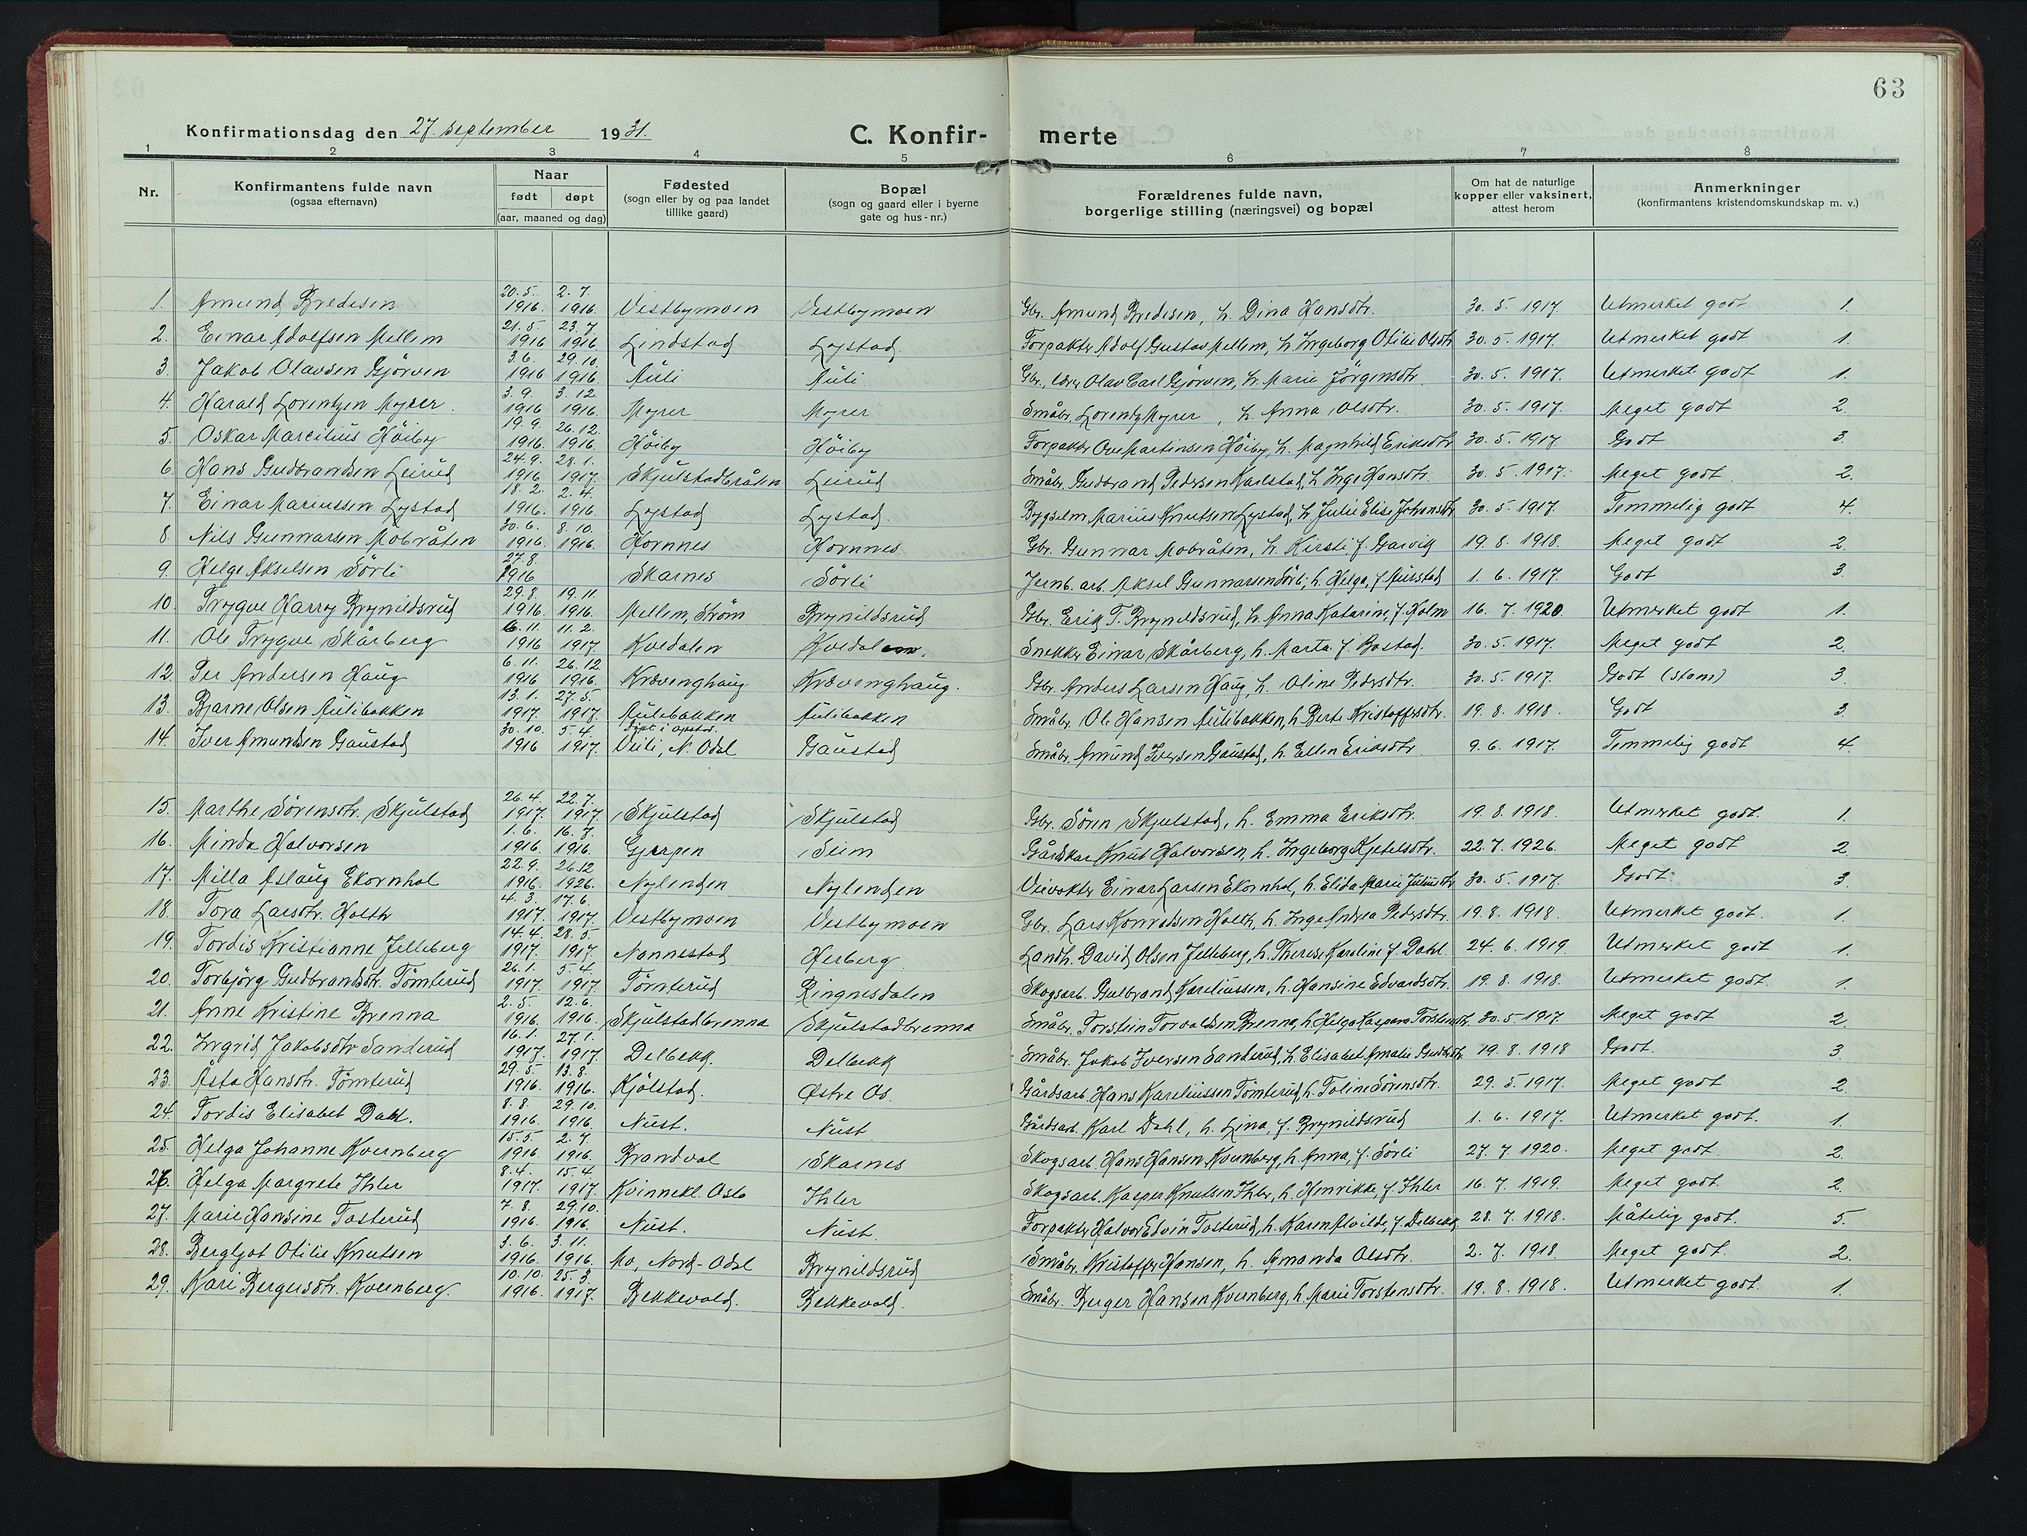 63
Konfirmationsdag den 27. september 1931. C. Konfir- merte
1 2 3 4 5 6 7 8
Nr. Konfirmantens fulde navn (ogsaa efternavn) Naar født døpt (aar, maaned og dag) Fødested (sogn eller by og paa landet tillike gaard) Bopæl (sogn og gaard eller i byerne gate og hus-nr.) Forældrenes fulde navn, borgerlige stilling (næringsvei) og bopæl Om hat de naturlige kopper eller vaksinert, attest herom Anmerkninger (konfirmantens kristendomskundskap m. v.)
1. Amund Bredesen 20.5. 1916 2.7. 1916. Vestbymoen Vestbymoen Gbr. Amund Bredesen, h. Dina Hansdtr. 30. 5. 1917. Utmerket godt 1.
2. Einar Adolfsen Mellem 21.5. 1916 23.7. 1916 Lindstad Lystad. Forpakter Adolf Gustav Mellem, h. Ingeborg Otilie Olsdtr 30. 5. 1917. Utmerket godt 1.
3. Jakob Olavsen Gjörven 3.6. 1916 29.10. 1916. Auli Auli. Gbr., lærer Olav Carl Gjörven, h. Marie Jörgensdtr. 30. 5. 1917. Utmerket godt 1.
4. Harald Lorentzen Myrer. 3.9. 1916 3.12 1916. Myrer Myrer Småbr. Lorentz Myrer, h. Anna Olsdtr. 30. 5. 1917. Meget godt 2.
5. Oskar Marcilius Höiby 19.9. 1916 26.12. 1916. Höiby Höiby Forpakter Ove Martinsen Höiby, h. Magnhild Eriksdtr 30. 5. 1917. Godt 3.
6. Hans Gudbrandsen Leirud 24.9. 1916 28.1. 1917. Skjulstadbråten Leirud Småbr. Gudbrand Pedersen Karlstad, h. Inge Hansdtr. 30. 5. 1917. Meget godt 2.
7. Einar Mariussen Lystad 18.2. 1916. 2.4. 1916 Lystad Lystad. Bygselm. Marius Knutsen Lystad, h. Julie Elise Johansdtr 30. 5. 1917. Temmelig godt 4.
8. Nils Gunnarsen Mobråten 30.6. 1916 8.10. 1916. Hornnes Hornnes. Gbr. Gunnar Mobråten, h. Kirsti f. Garvik 19. 8. 1918. Meget godt 2.
9. Helge Akselsen Sörli 27.8. 1916 Skarnes Sörli Jernb. arb. Aksel Gunnarsen Sörli, h. Helga, f. Aurstad 1. 6. 1917. Godt 3.
10. Trygve Harry Brynildsrud 29.8. 1916 19.11. 1916. Mellem, Ström Brynildsrud Gbr. Erik T. Brynildsrud, h. Anna Katarine, f. Holm 16. 7. 1920 Utmerket godt 1.
11. Ole Trygve Skårberg 6.11. 1916 11.2. 1917 Kvedalen Kvedalen. Snekker Einar Skårberg, h. Marta f. Bostad. 30. 5. 1917. Meget godt 2.
12. Per Andersen Haug 6.11. 1916 26.12 1916. Krævenghaug Krævenghaug. Gbr. Anders Larsen Haug, h. Oline Pedersdtr. 30. 5. 1917. Godt (stam) 3.
13. Bjarne Olsen Aulibakken 13.1. 1917. 27.5. 1917. Aulibakken Aulibakken Småbr. Ole Hansen Aulibakken, h. Berte Kristoffersdtr. 19. 8. 1918. Godt 3.
14. Iver Amundsen Gaustad 30.10. 1916 5.4. 1917. N. Odal Gaustad Småbr. Amund Iversen Gaustad, h. Ellen Eriksdtr. 9. 6. 1917. Temmelig godt 4.
15. Marthe Sörensdtr. Skjulstad 26.4. 1917. 22.7. 1917. Skjulstad Skjulstad Gbr. Sören Skjulstad, h. Emma Eriksdtr. 19. 8. 1918. Utmerket godt. 1.
16. Minda Halvorsen 1.6. 1916 16.7. 1916. Gjerpen Seim Gårdskar Knut Halvorsen, h. Ingeborg Kjetelsdtr. 22. 7. 1926. Meget godt 2.
17. Milla Aslaug Ekornhol 22.9. 1916 26.12 1926. Nylenden Nylenden Veivokter Einar Larsen Ekornhol, h. Elida Marie Juliusdtr 30. 5. 1917. Godt 3.
18. Tora Larsdtr. Holth 4.3. 1917. 17.6. 1917. Vestbymoen Vestbymoen Gbr. Lars Konradsen Holth, h. Inge Andrea Pedersdtr. 19. 8. 1918. Utmerket godt. 1.
19. Tordis Kristianne Jelleberg 14.4. 1917. 28.5. 1917. Nannestad Herberg Landh. David Olsen Jelleberg, h. Therese Karoline f. Dahl. 24. 6. 1919. Utmerket godt 1.
20. Torbjörg Gudbrandsdtr. Tömterud 26.1. 1917. 5.4. 1917 Tömterud Ringnesdalen Skogsarb. Gulbrand Kareliussen, h. Hansine Edvardsdtr. 19. 8. 1918. Utmerket godt. 1.
21. Anne Kristine Brenna 2.5. 1916 12.6. 1916. Skjulstadbrenna Skjulstadbrenna Småbr. Torstein Torvaldsen Brenna, h. Helga Kaspara Torstensdtr. 30. 5. 1917. Meget godt 2.
22. Ingrid Jakobsdtr Sanderud 16.1. 1917. 27.1. 1917. Delbekk Delbekk Småbr. Jakob Iversen Sanderud, h. Elisabet Amalie Gudbrdtr 19. 8. 1918 Godt. 3.
23. Åsta Hansdtr. Tömterud 29.5. 1916. 13.8. 1916. Kjölstad. Østre Os. Gårdsarb. Hans Kareliussen Tömterud, h. Toline Sörensdtr. 29. 5. 1917. Meget godt 2.
24. Tordis Elisabet Dahl. 8.8. 1916. 29.10. 1916. Nust. Nust. Gårdsarb. Karl Dahl, h. Lina, f. Brynildsrud 1. 6. 1917. Utmerket godt. 1.
25. Helga Johanne Kvernberg 15.5. 1916. 2.7. 1916. Brandval Skarnes Skogsarb. Hans Hansen Kvernberg, h. Anna, f. Sörli 27. 7. 1920. Meget godt. 2.
26. Helga Margrete Ihler 8.4. 1917. 15.4 1917. Kvinnekl. Oslo Ihler Skogsarb. Kasper Knutsen Ihler, h. Henrikke, f. Ihler 16. 7. 1919. Meget godt. 2.
27. Marie Hansine Tosterud 7.8. 1916. 29.10. 1916. Nust. Nust. Forpakter Halvor Edvin Tosterud, h. Karen Alvilde, f. Delbekk 28. 7. 1918. Måtelig godt. 5.
28. Bergljot Otilie Knutsen 3.6. 1916. 3.11. 1916. Mo, Nord-Odal Brynildsrud Småbr. Kristoffer Hansen, h. Amanda Olsdtr. 2. 7. 1918. Meget godt. 2.
29. Kari Bergersdtr. Kvernberg. 10.10. 1916. 25.3. 1917. Bekkevold. Bekkevold. Småbr. Berger Hansen Kvernberg, h. Marie Torstensdtr. 19. 8. 1918. Utmerket godt. 1.